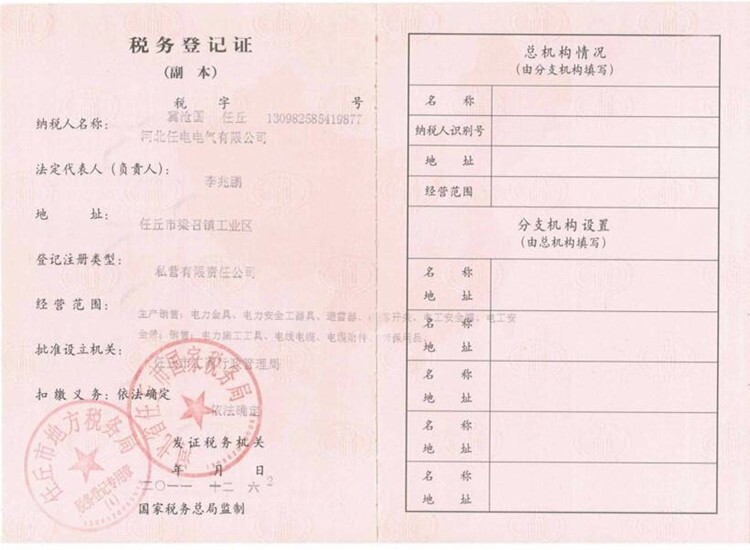 税务登记证
(副 本)
税 字 号
冀沧国 任丘 130982585419877
纳税人名称:
河北任电电气有限公司
法定代表人(负责人):
李兆鹏
地 址:
任丘市梁召镇工业区
登记注册类型:
私营有限责任公司
经营范围:
生产销售:电力金具、电力安全工器具、避雷器、
销售:电力施工工具、电线电缆、电缆附件
批准设立机关:
扣缴义务:依法确定
依法确定
发证税务机关
年 月 日
二〇一一 十二 六
国家税务总局监制
任丘市国家税务局
任丘市地方税务局
税务登记专用章
总机构情况
(由分支机构填写)
名 称
纳税人识别号
地 址
经营范围
分支机构设置
(由总机构填写)
名 称
地 址
名 称
地 址
名 称
地 址
名 称
地 址
名 称
地 址